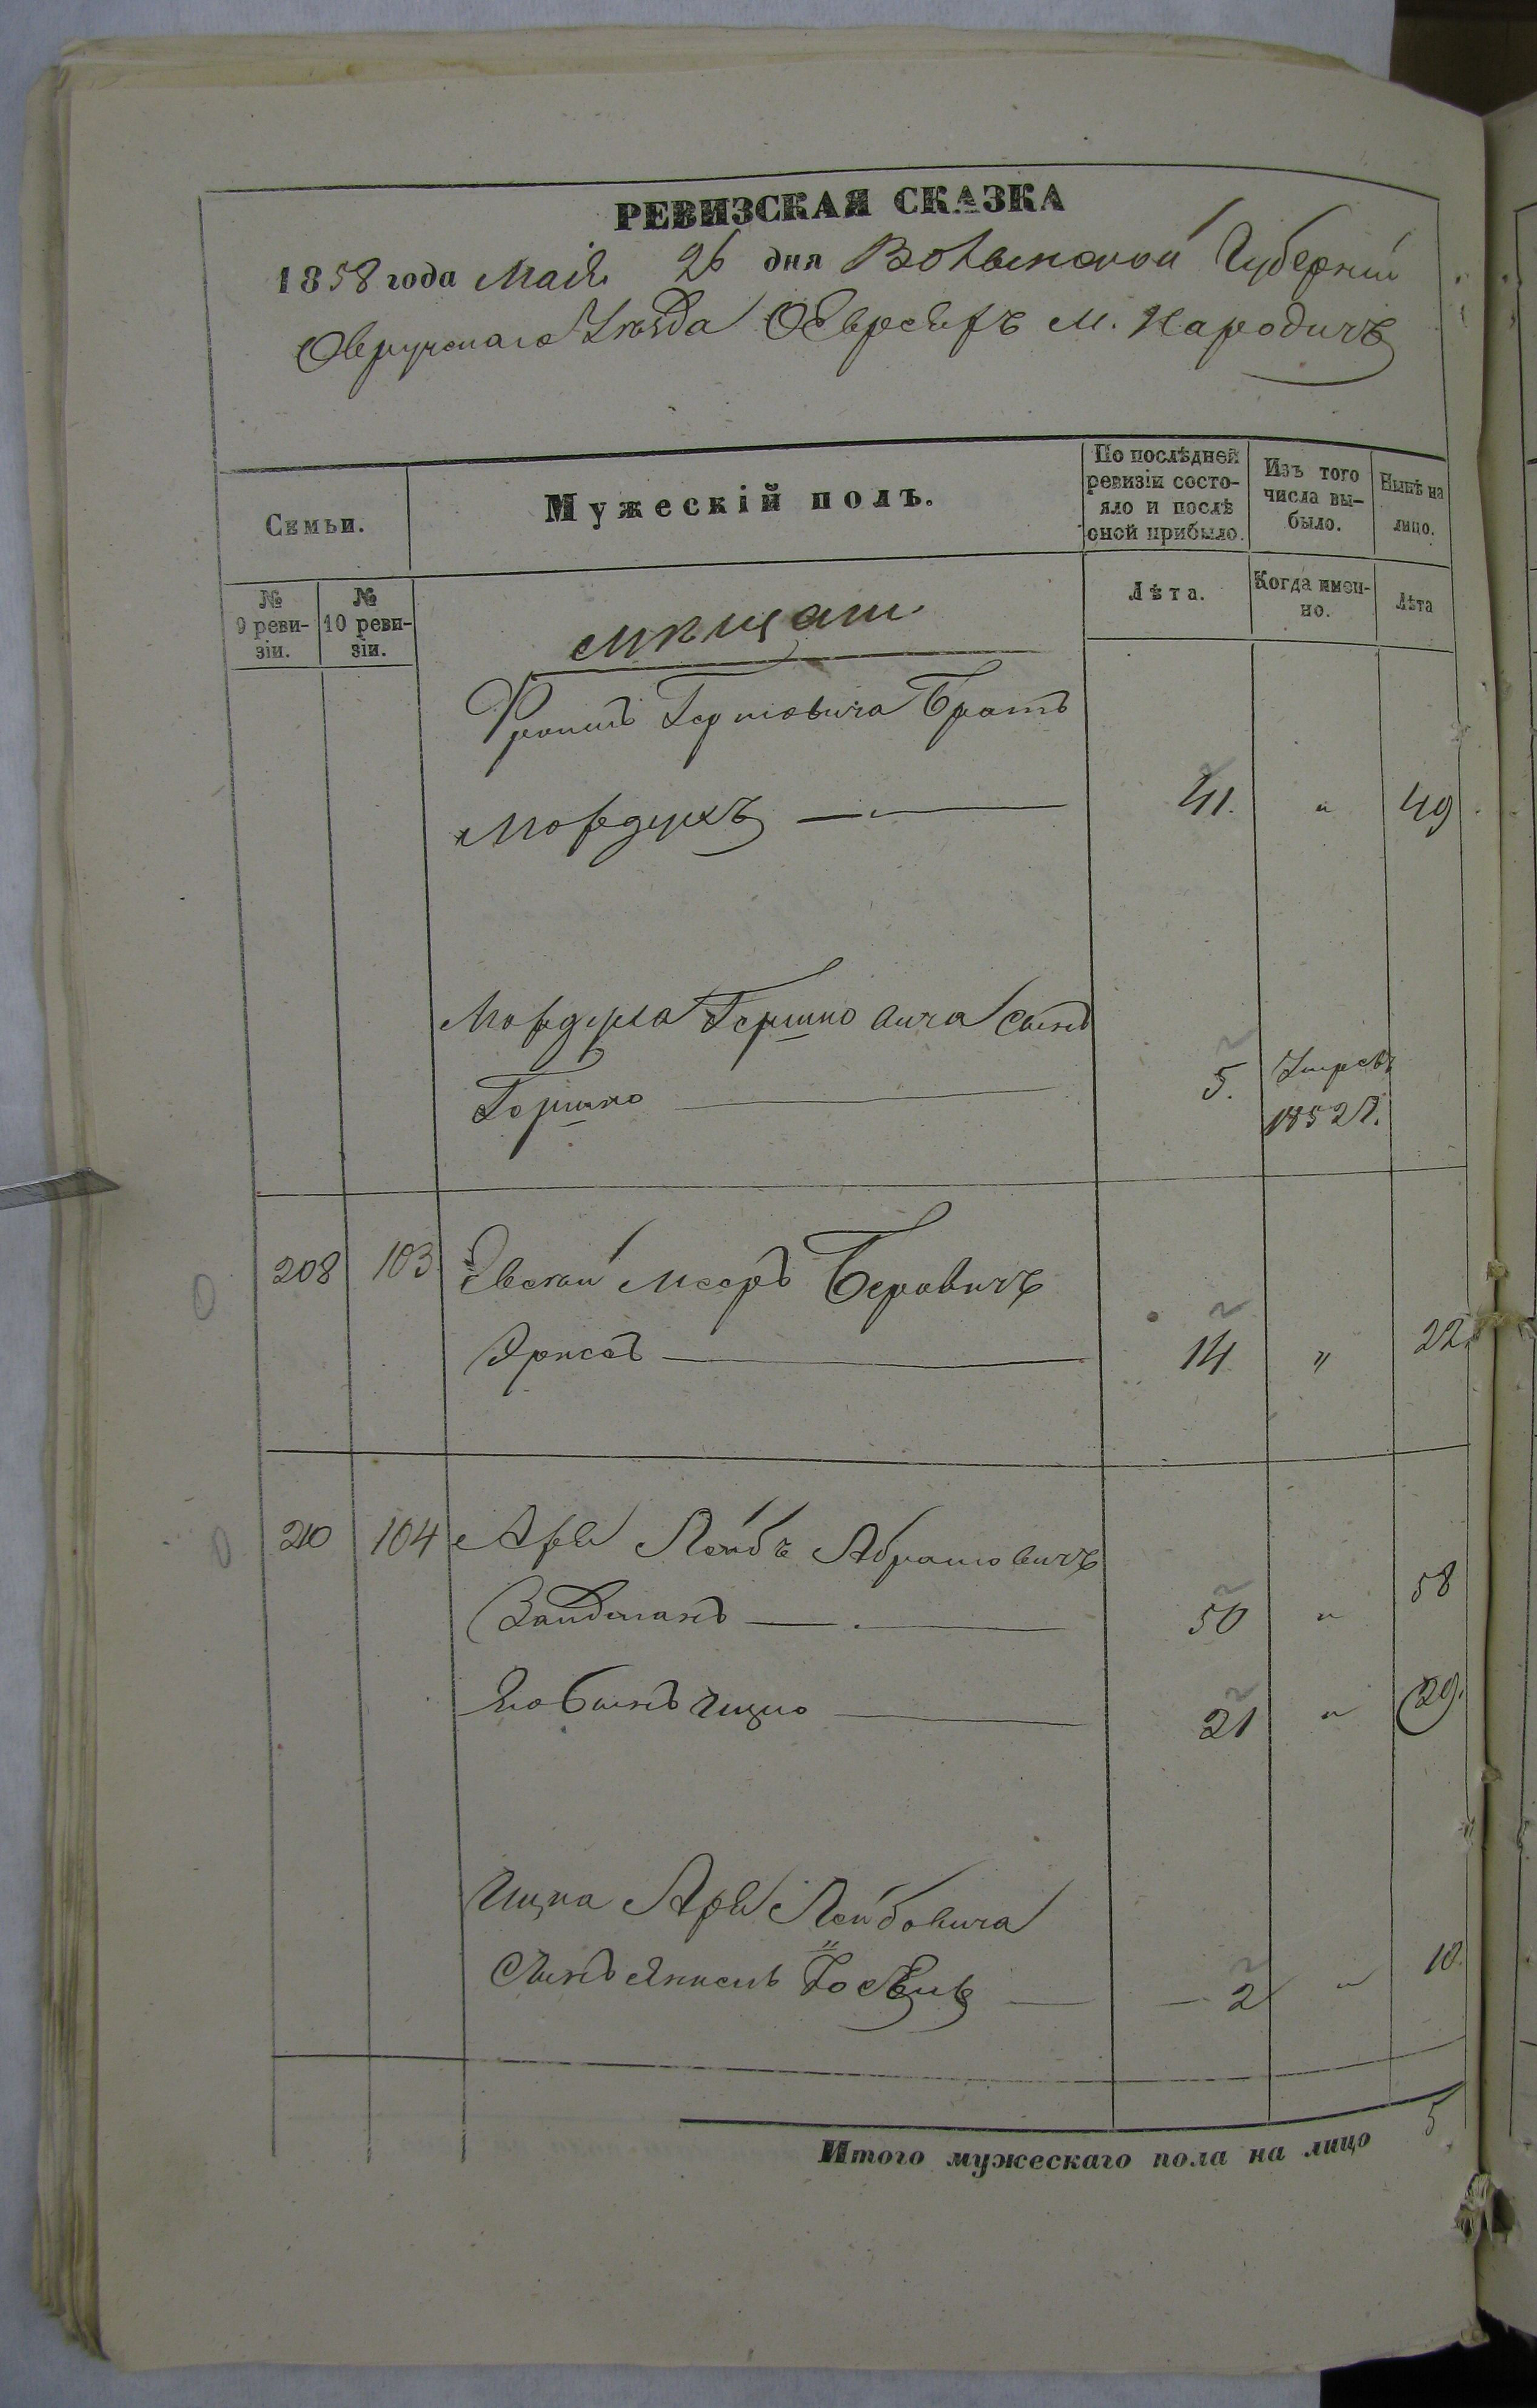 РЕВИЗСКАЯ СКАЗКА
1858 года Мая 26 дня Волынской Губерніи
Овручскаго Уѣзда О Евреяхъ м. Народичъ
Семьи.
Мужескій полъ.
По послѣдней ревизіи состо-
яло и послѣ
оной прибыло.
Изъ того
числа вы-
было.
Нынѣ на
лицо.
№
9 реви-
зіи.
№
10 реви-
зіи.
Лѣта.
Когда имен-
но.
Лѣта
Мѣщане
Гершковича Братъ
Мордухъ 41. " 49
Мордуха Гершковича Сынъ
Гершко 5. Умеръ
1852 г.
208 103 Мееръ Беровичъ
14 " 22.
210 104 Арья Лейбъ Абрамовичъ
Вайдманъ 50 " 58
Его Сынъ Ицко 21 " 29.
Ицка Арья Лейбовича
Сынъ 2 " 10.
Итого мужескаго пола на лицо 5